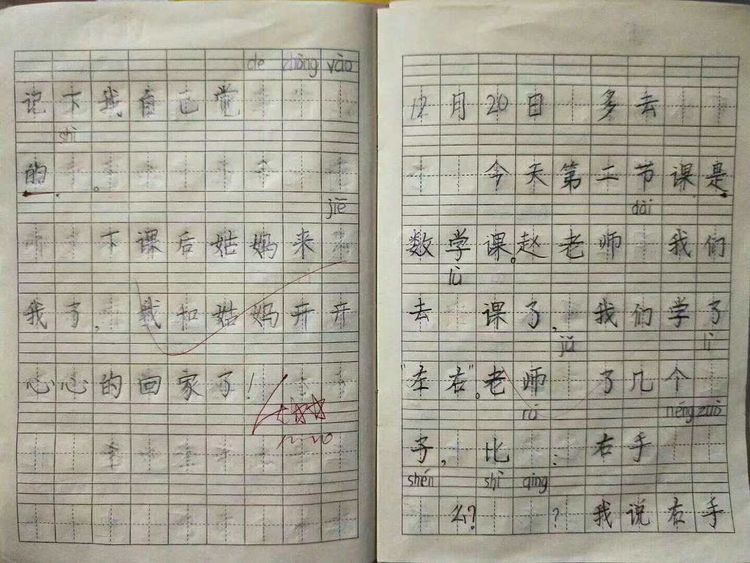 de zhòng yào
说下我自己觉
shì
的。
jiē
下课后姑妈来
我了，我和姑妈开开
心心的回家了！
12.20
12月20日 多去
今天第二节课是
dài
数学课。赵老师 我们
lù
去 课了，我们学了
jǔ lì
"左右"。老师 了几个
rú néng zuò
子，比 ：右手
shén shì qing
么？ ？我说右手